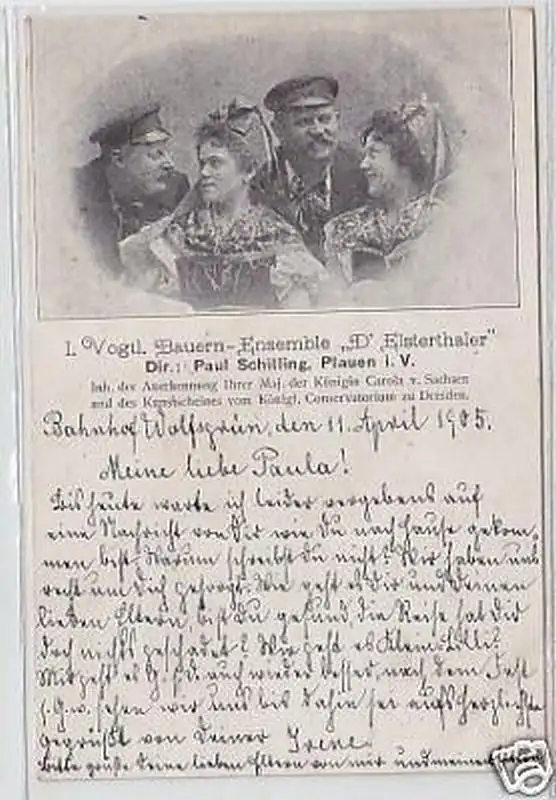 I. Vogtl. Bauern-Ensemble „D' Elsterthaler"
Dir.: Paul Schilling, Plauen i. V.
Inh. der Anerkennung Ihrer Maj. der Königin Carola v. Sachsen
und des Kunstscheines vom Königl. Conservatorium zu Dresden.
Bahnhof Wolfsgrün, den 11. April 1905.
Meine liebe Paula!
Bis heute warte ich leider vergebens auf
eine Nachricht von Dir wie Du nach Hause gekom-
men bist. Warum schreibst Du nicht? Wir haben uns
recht um Dich gesorgt. Wie geht es Dir und Deinen
lieben Eltern, bist Du gesund, die Reise hat Dir
doch nichts geschadet? Wie geht es Klein Lilli?
Mir geht es G. s. D. auch wieder besser, nach dem Fest
s. G. w. sehen wir uns bis dahin sei aufs herzlichste
gegrüßt von Deiner Irene.
Bitte grüße Deine lieben Eltern von mir und meinen